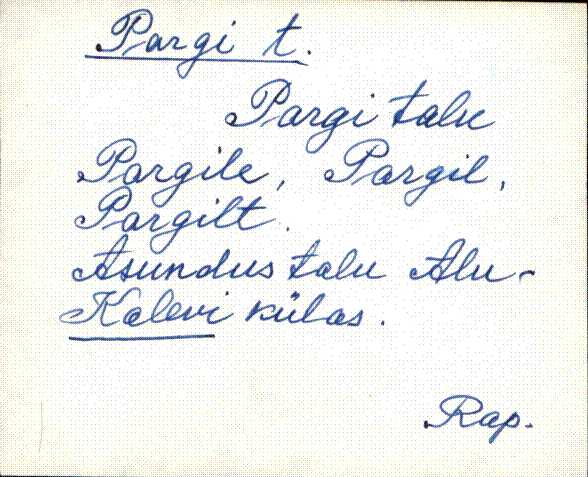 Pargi t.
Pargi talu
Pargile, Pargil,
Pargilt.
Asundustalu Alu-
Kalevi külas.
Rap.